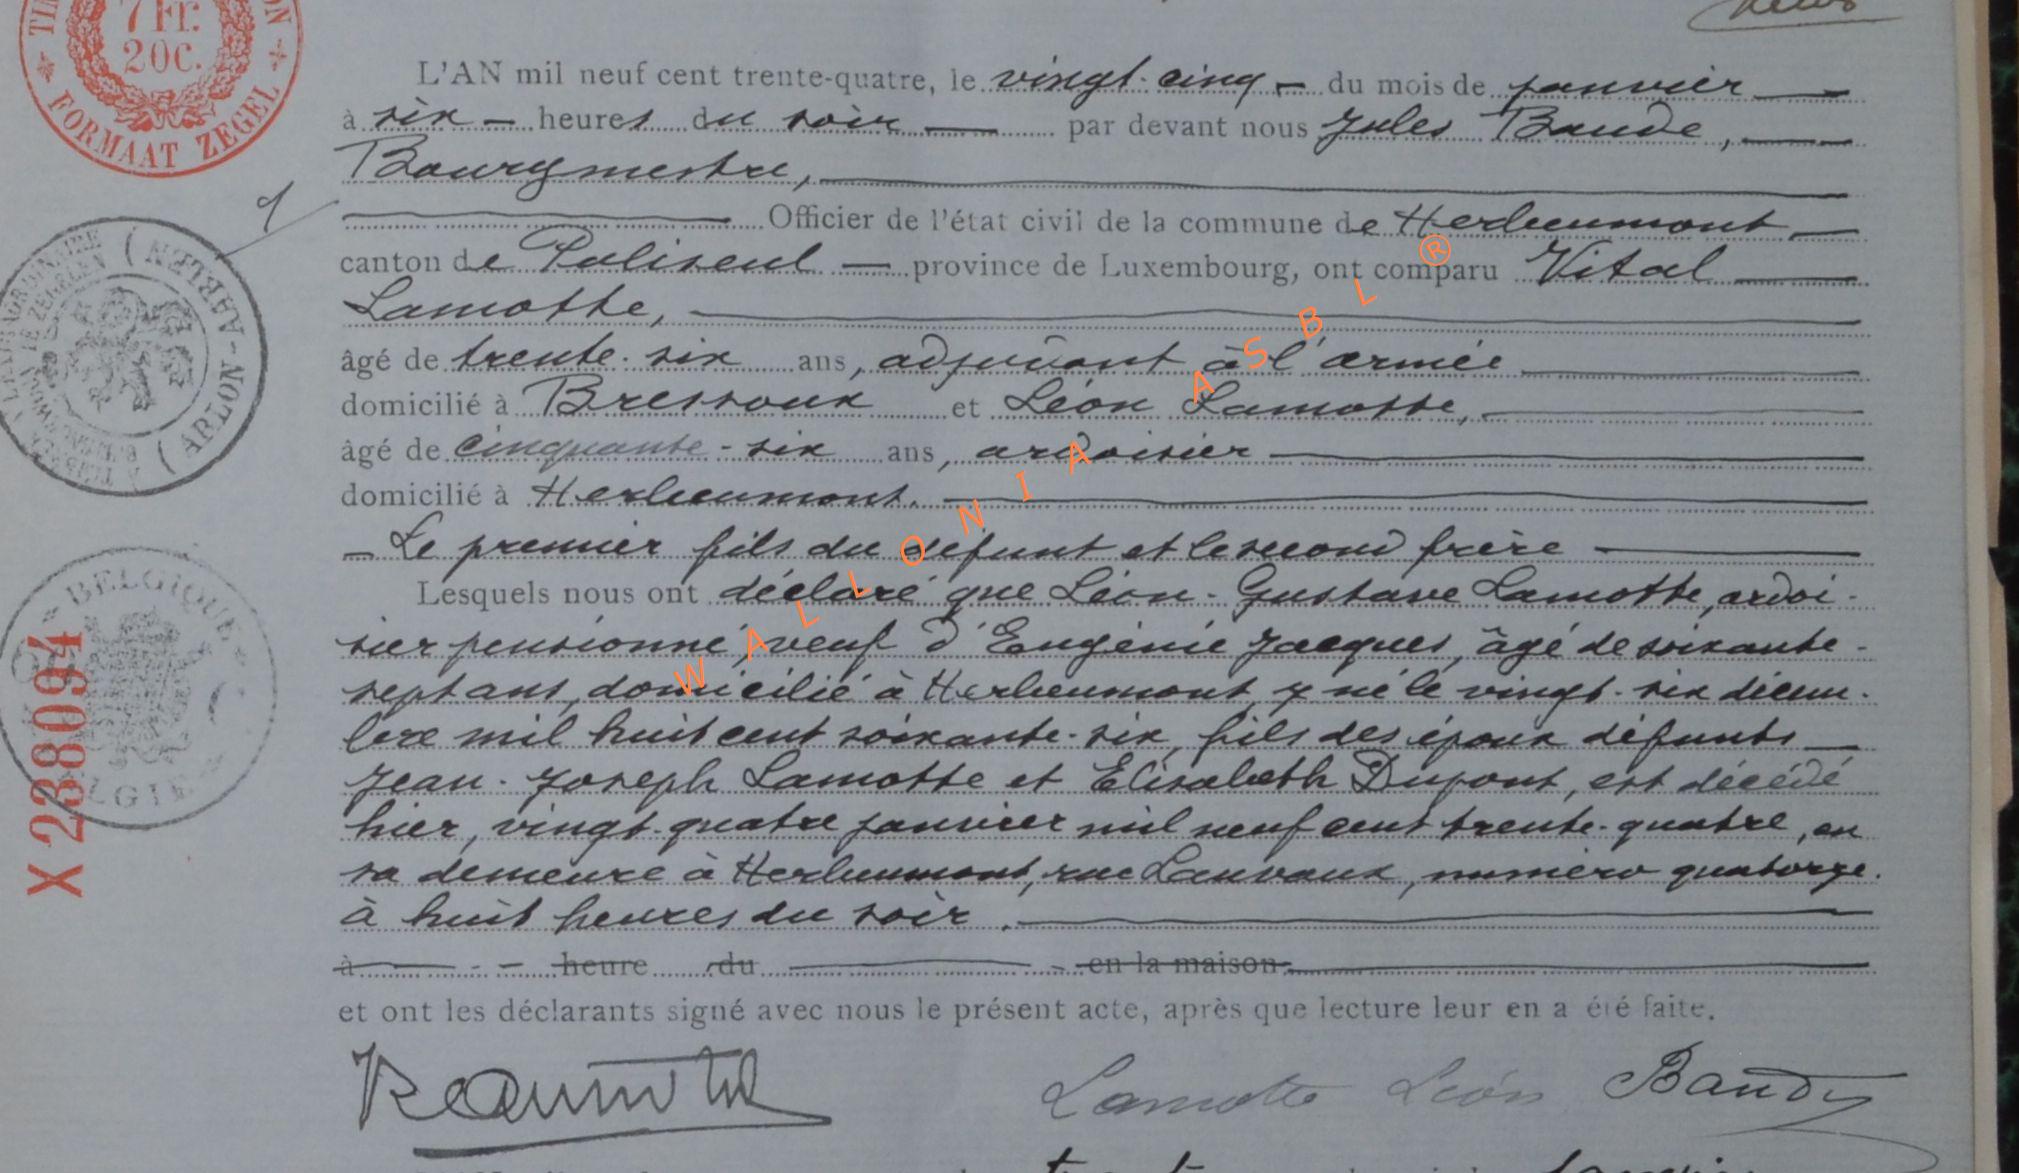 7 Fr.
20C.
FORMAAT ZEGEL
L'AN mil neuf cent trente-quatre, le vingt-cinq du mois de janvier
à six heures du soir par devant nous Jules Baude,
Bourgmestre,
Officier de l'état civil de la commune de Herbeumont
canton de Paliseul province de Luxembourg, ont comparu Vital
Lamotte,
âgé de trente-six ans, adjudant à l'armée
domicilié à Bressoux et Léon Lamotte,
âgé de cinquante-six ans, ardoisier
domicilié à Herbeumont.
Le premier fils du défunt et le second frère
Lesquels nous ont déclaré que Léon-Gustave Lamotte, ardoi-
sier pensionné, veuf d'Eugénie Jacques, âgé de soixante-
sept ans, domicilié à Herbeumont, y né le vingt-six décem-
bre mil huit cent soixante-six, fils des époux défunts
Jean-Joseph Lamotte et Elisabeth Dupont, est décédé
hier, vingt-quatre janvier mil neuf cent trente-quatre, en
sa demeure à Herbeumont, rue Lauvaux, numéro quatorze.
à huit heures du soir.
à heure du en la maison
et ont les déclarants signé avec nous le présent acte, après que lecture leur en a été faite.
Lamotte Léon Baude
ARLON - AARLEN
BELGIQUE
BELGIE
X 238094
WALLONIA ASBL ®